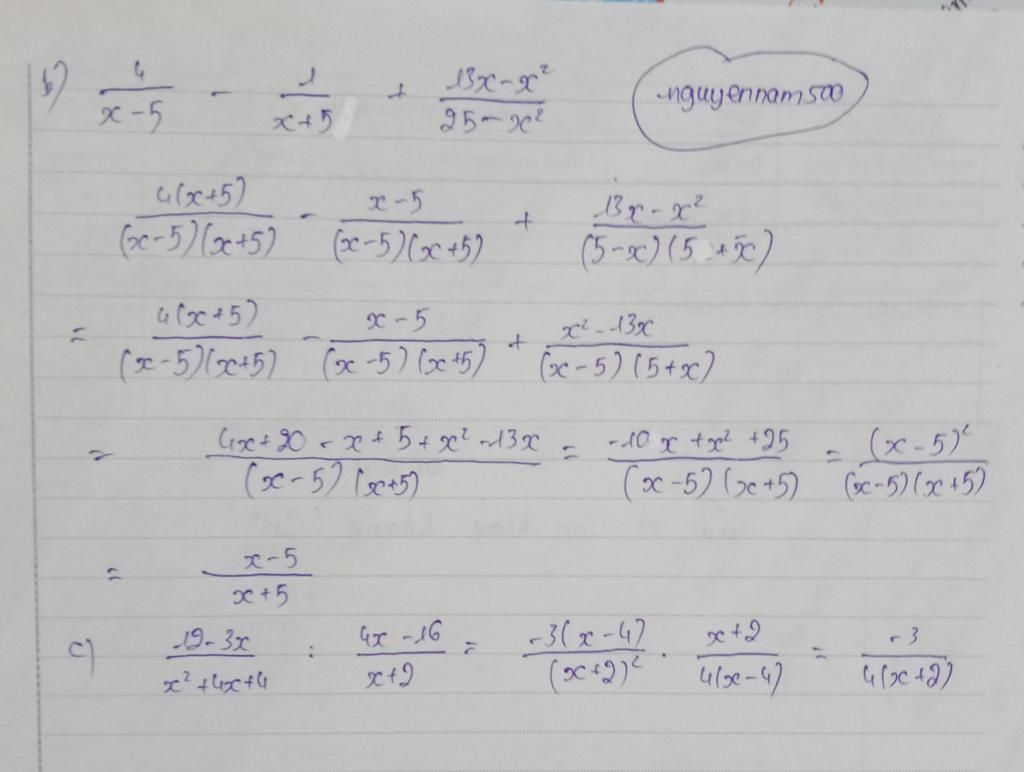 b) 4/(x-5) - 1/(x+5) + (13x-x²)/(25-x²) nguyennam500
4(x+5)/((x-5)(x+5)) - (x-5)/((x-5)(x+5)) + (13x-x²)/((5-x)(5+x))
= 4(x+5)/((x-5)(x+5)) - (x-5)/((x-5)(x+5)) + (x²-13x)/((x-5)(5+x))
= (4x+20-x+5+x²-13x)/((x-5)(x+5)) = (-10x+x²+25)/((x-5)(x+5)) = (x-5)²/((x-5)(x+5))
= (x-5)/(x+5)
c) (12-3x)/(x²+4x+4) : (4x-16)/(x+2) = -3(x-4)/(x+2)² . (x+2)/(4(x-4)) = -3/(4(x+2))